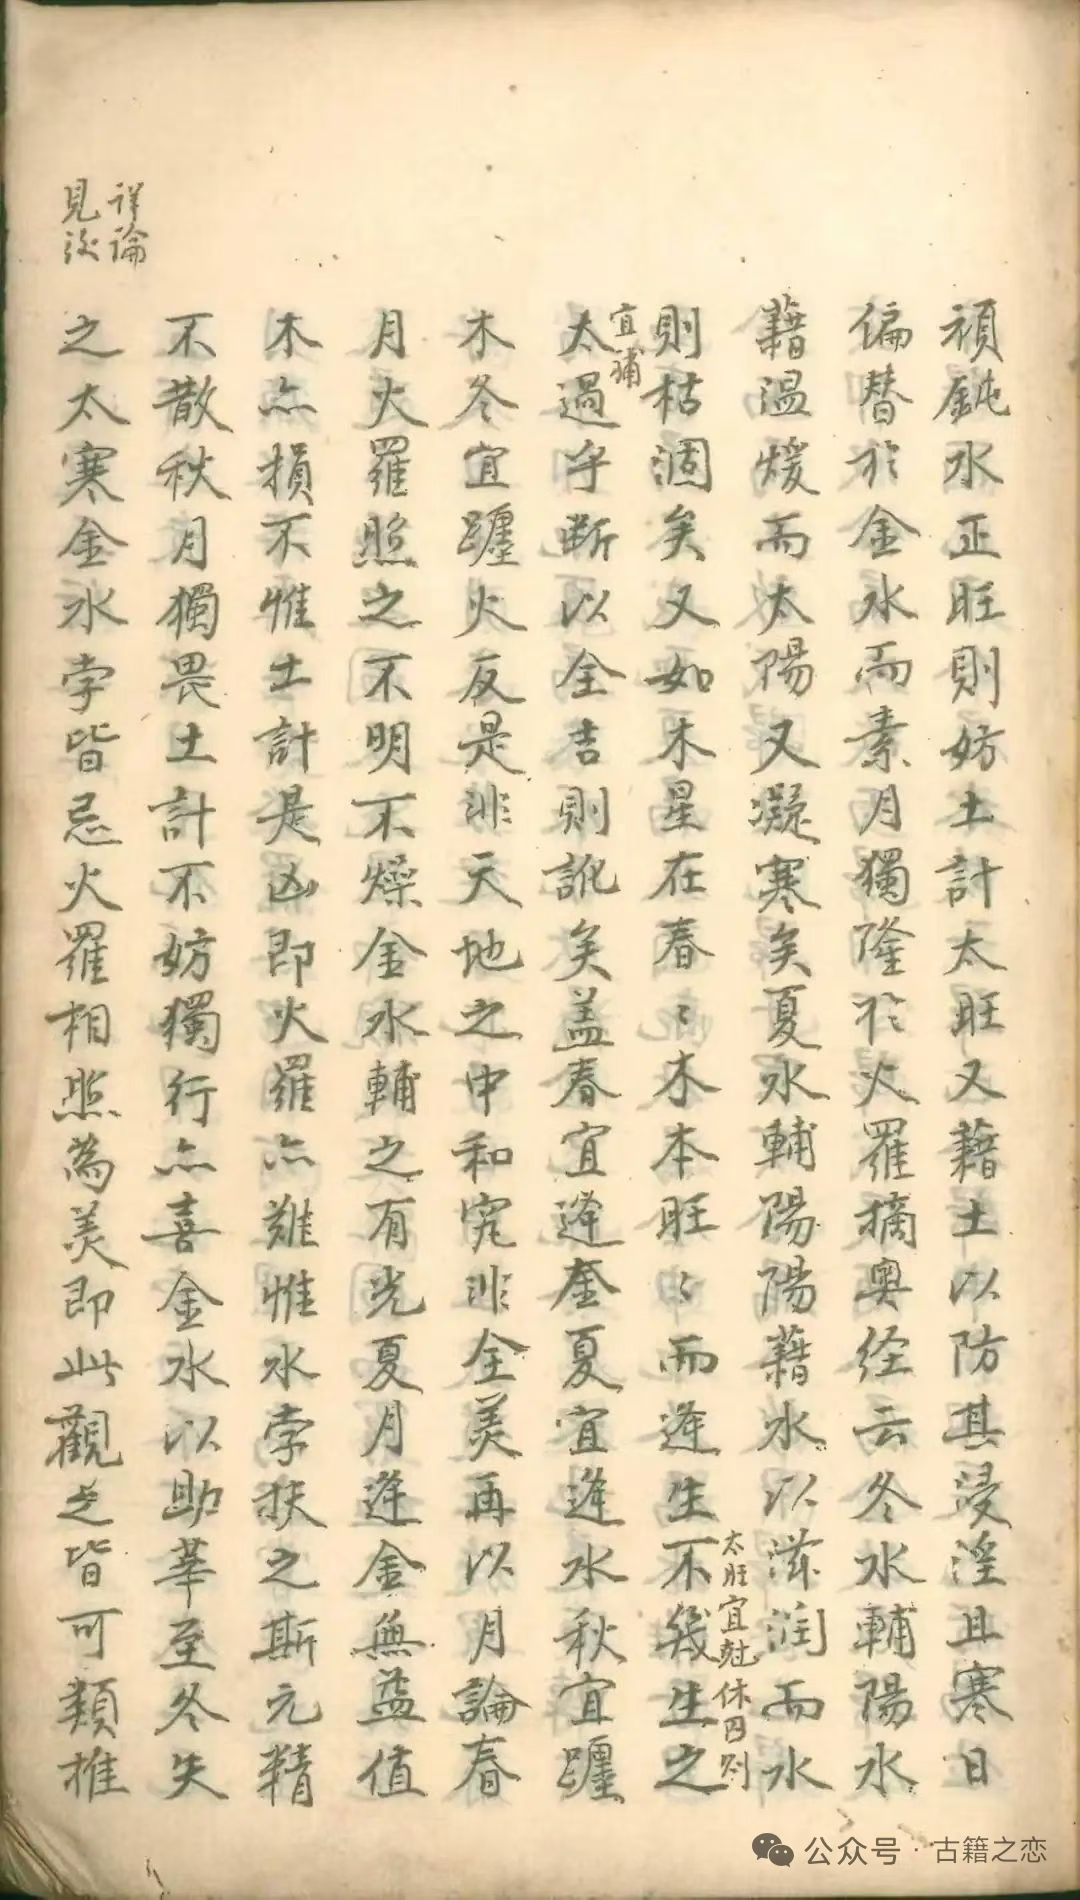 頑鈍水正旺則妨土計太旺又藉土以防其浸淫且寒日
偏替於金水而素月獨隆於火羅摘奥经云冬水輔陽水
藉温煖而太陽又凝寒矣夏水輔陽陽藉水以滋润而水
則枯涸矣又如木星在春〻木本旺〻而逢生不幾生之
太旺宜尅休囚则
宜補
太過乎断以全吉則訛矣盖春宜逢奎夏宜逢水秋宜躔
木冬宜躔火反是非天地之中和究非全美再以月論春
月火羅照之不明不燥金水輔之有光夏月逢金無益值
木亦損不惟土計是凶即火羅亦难惟水孛扶之斯元精
不散秋月獨畏土計不妨獨行亦喜金水以助華至冬失
之太寒金水孛皆忌火羅相照為美即此觀之皆可類推
詳論
見後
公众号·古籍之恋